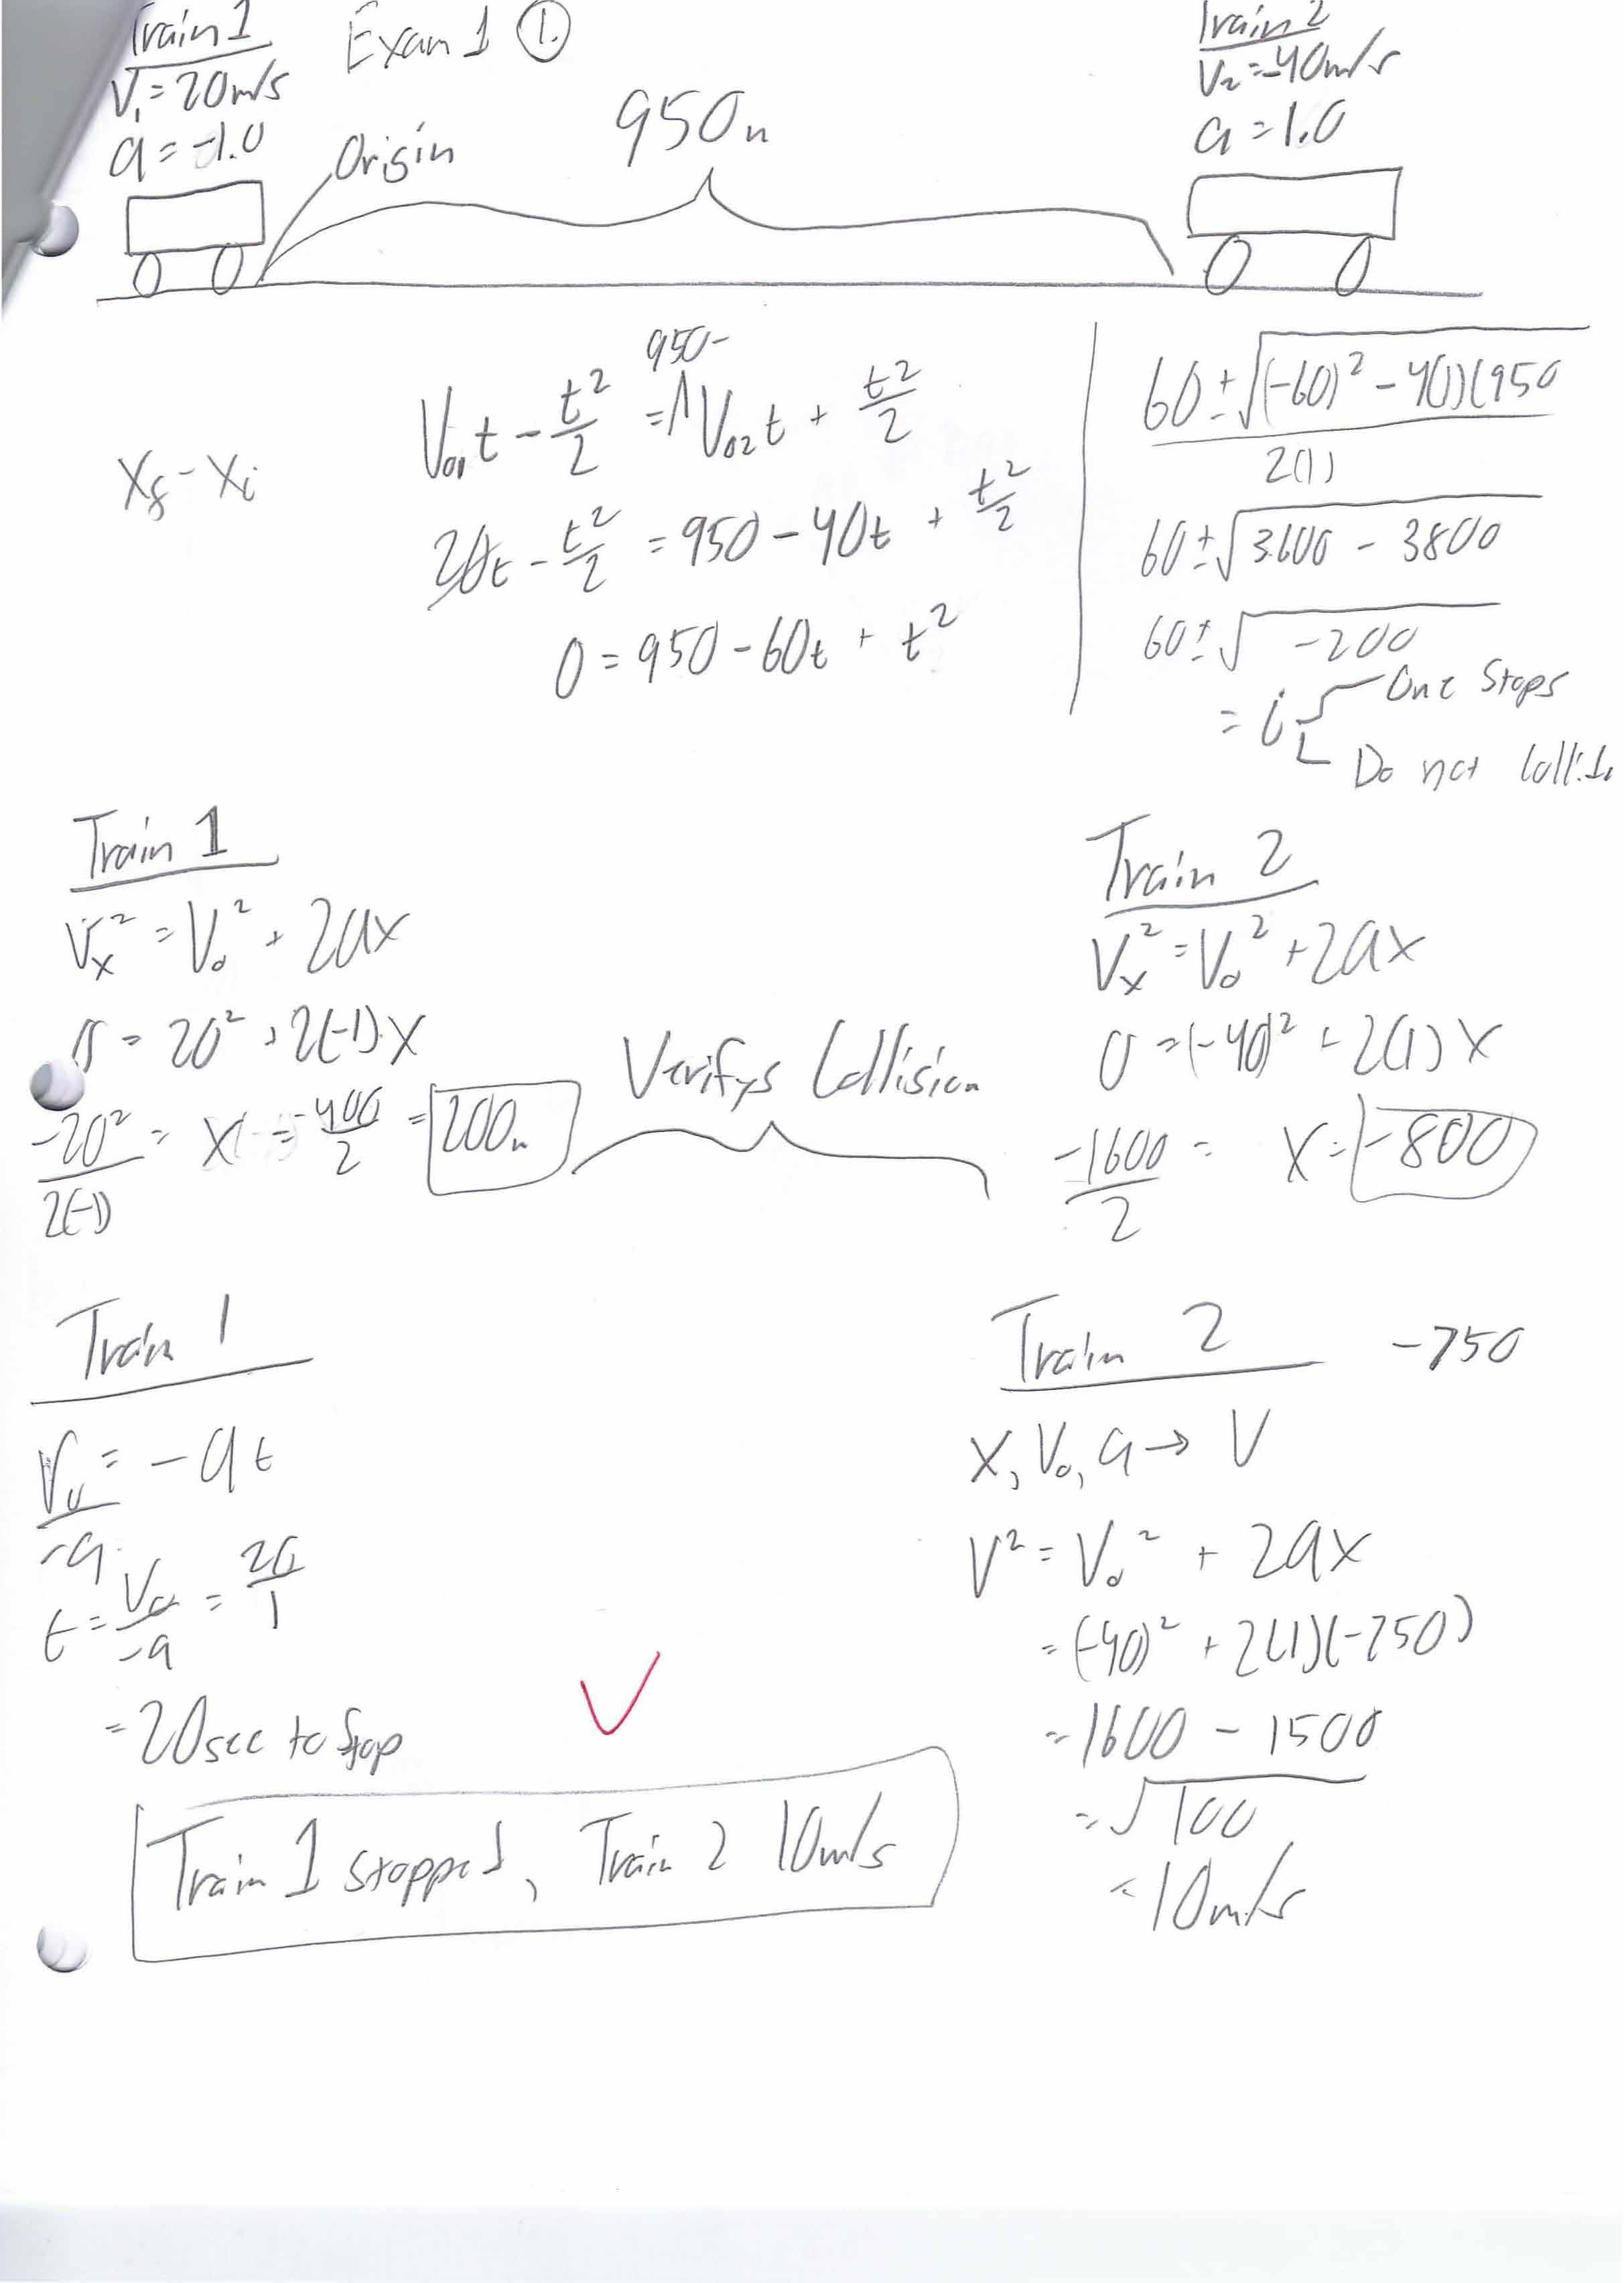 Train 1
V₁ = 20m/s
a = -1.0
Exam 1 ①.
Origin
950m
Train 2
V₂ = -40m/s
a = 1.0
Xf - Xi
950-
V₀₁t - t²/2 = ^V₀₂t + t²/2
20t - t²/2 = 950 - 40t + t²/2
0 = 950 - 60t + t²
60 ± √(-60)² - 4(1)(950
2(1)
60 ± √3600 - 3800
60 ± √-200
= i
One Stops
Do not Collide
Train 1
Vx² = V₀² + 2ax
0 = 20² + 2(-1)x
-20²/2(-1) = x = -400/2 = 200m
Verifys Collision
Train 2
Vx² = V₀² + 2ax
0 = (-40)² + 2(1)x
-1600/2 = x = -800
Train 1
V₀ = -at
-a
t = V₀/-a = 20/1
= 20sec to stop
Train 1 stopped, Train 2 10m/s
Train 2 -750
X, V₀, a → V
V² = V₀² + 2ax
= (-40)² + 2(1)(-750)
= 1600 - 1500
= √100
= 10m/s